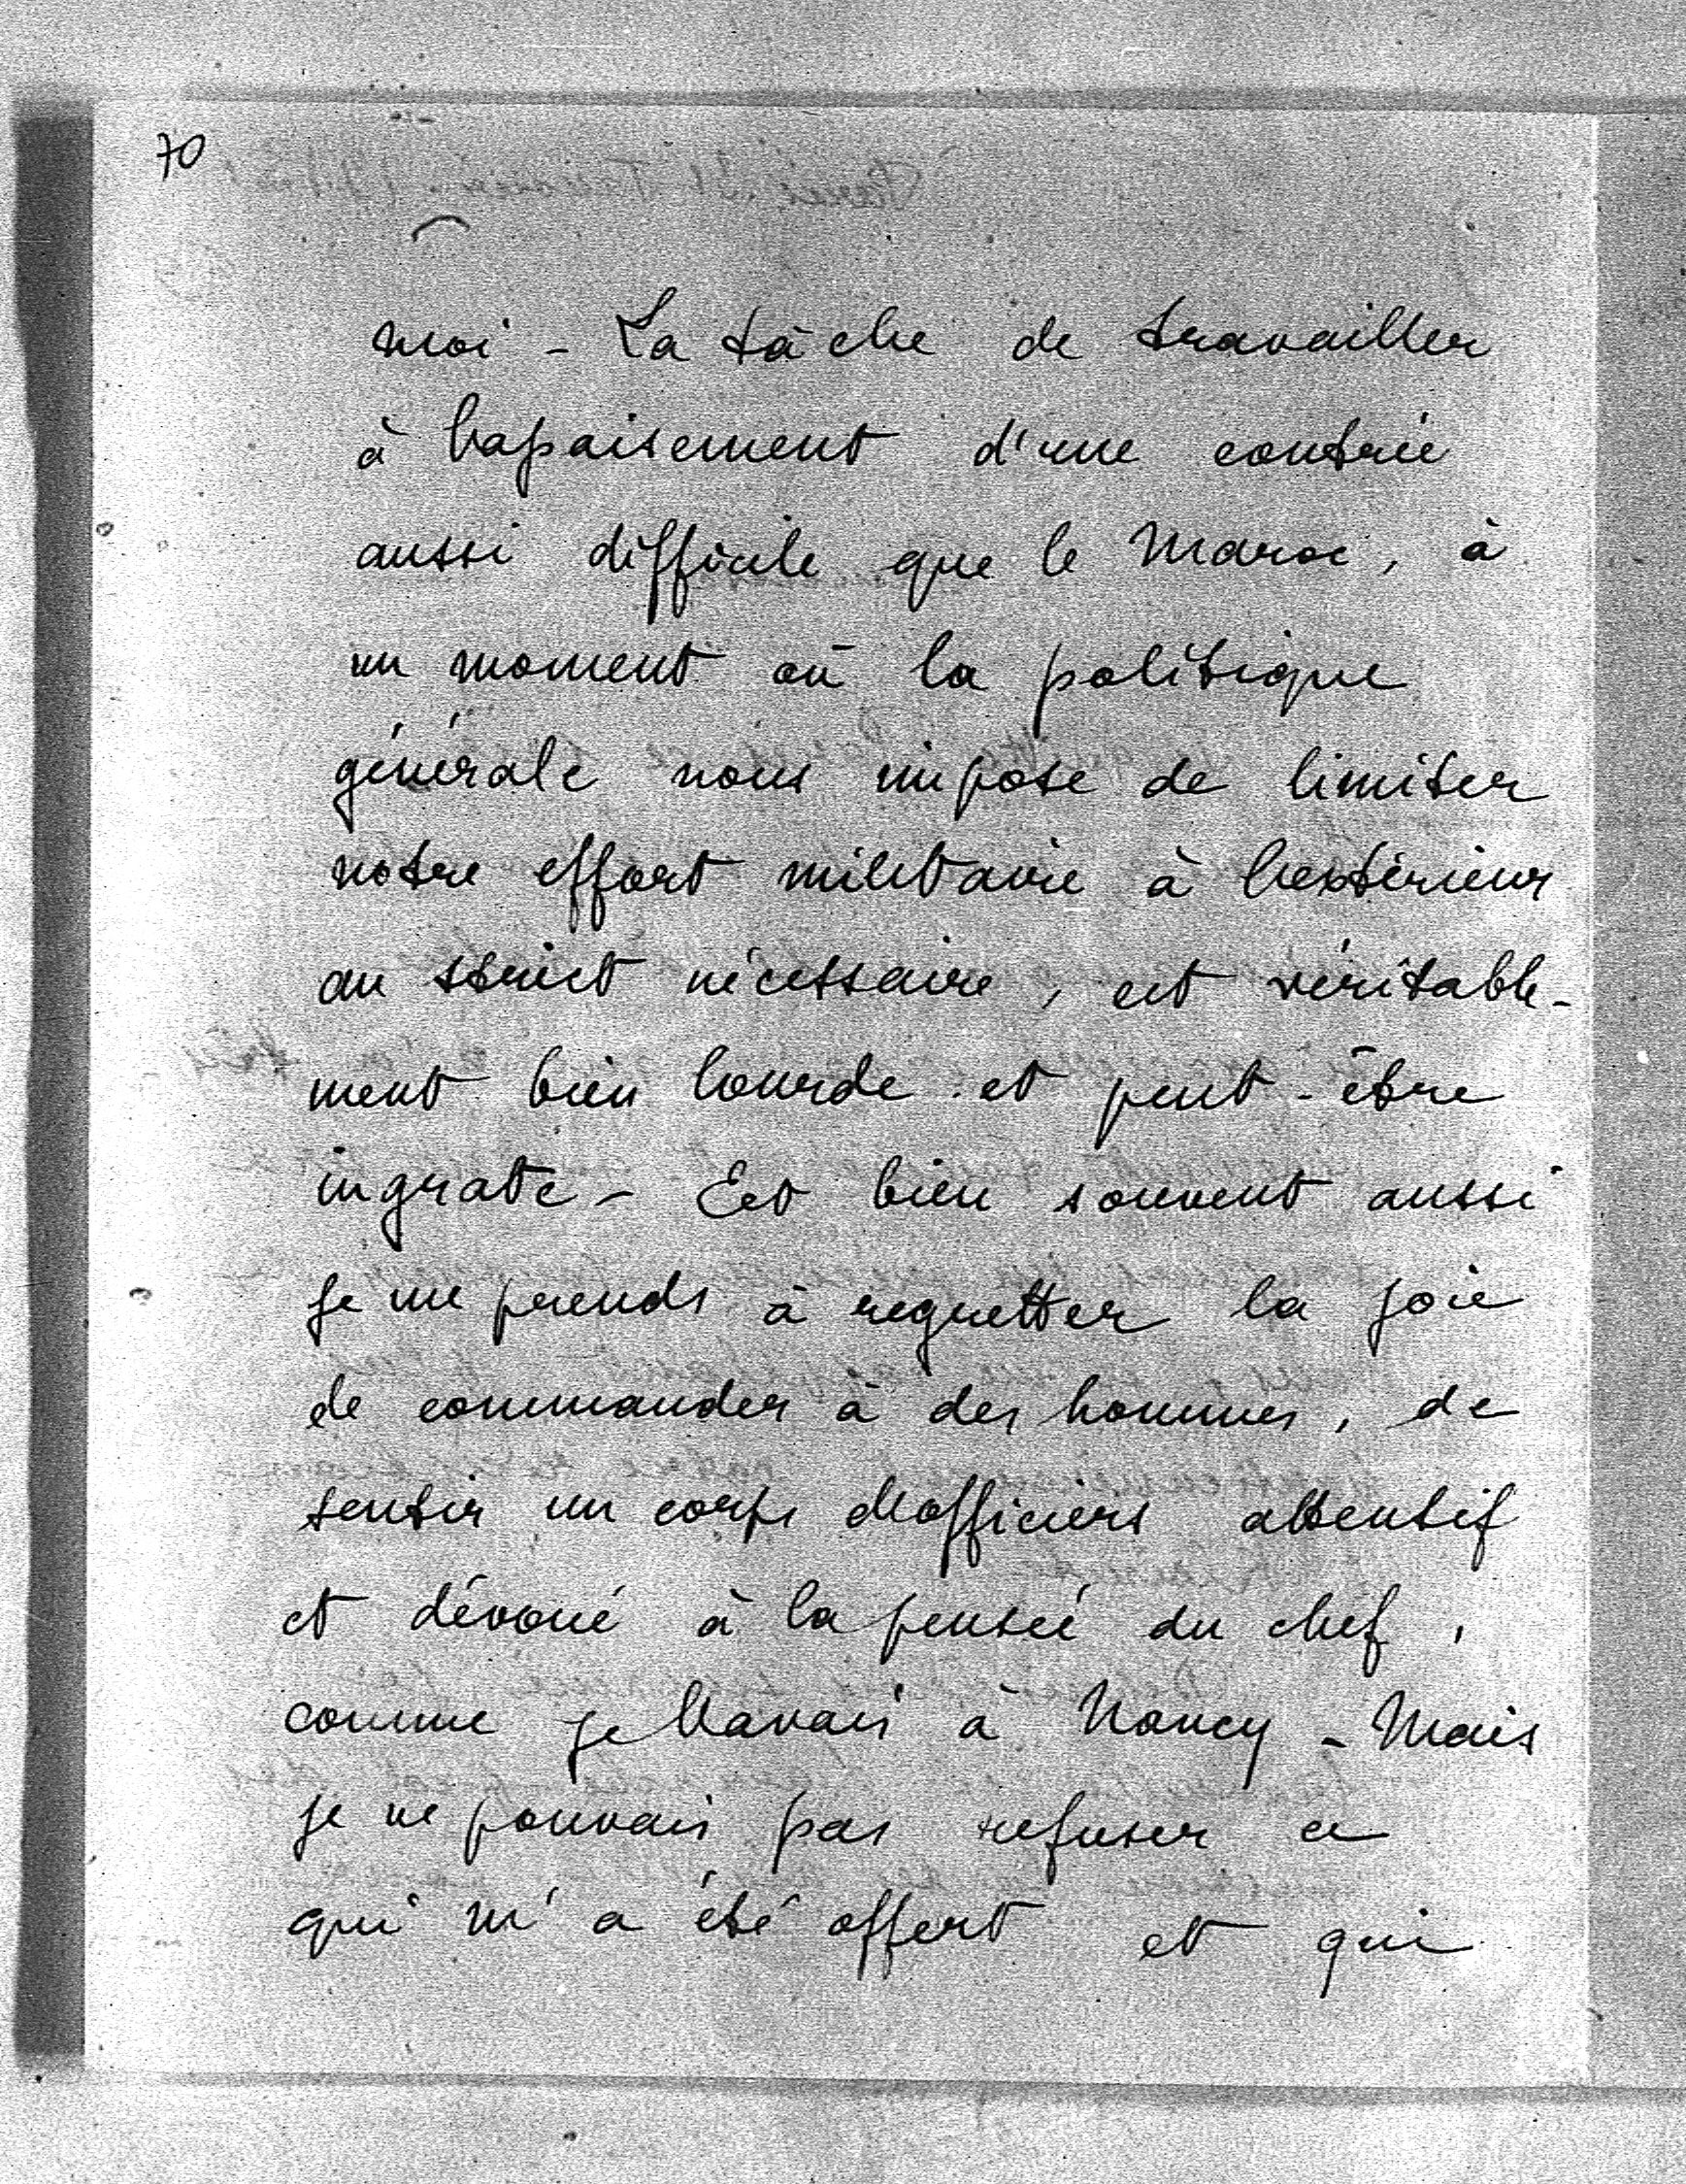 70
moi - La tâche de travailler
à l'apaisement d'une contrée
aussi difficile que le Maroc, à
un moment où la politique
générale nous impose de limiter
notre effort militaire à l'extérieur
au strict nécessaire, est véritable-
ment bien lourde et peut-être
ingrate - Est bien souvent aussi
je me prends à regretter la joie
de commander à des hommes, de
sentir un corps d'officiers attentif
et dévoué à la pensée du chef,
comme je l'avais à Nancy - Mais
je ne pouvais pas refuser ce
qui m'a été offert et qui